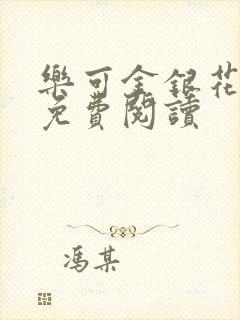 樂可金銀花
免費閱讀
馮某